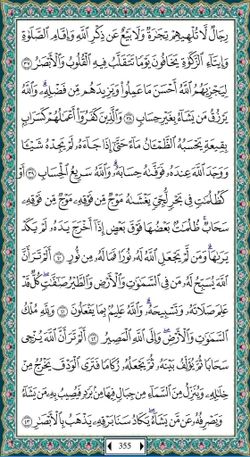 رِجَالٌ لَّا تُلْهِيهِمْ تِجَٰرَةٌ وَلَا بَيْعٌ عَن ذِكْرِ ٱللَّهِ وَإِقَامِ ٱلصَّلَوٰةِ
وَإِيتَآءِ ٱلزَّكَوٰةِ يَخَافُونَ يَوْمًا تَتَقَلَّبُ فِيهِ ٱلْقُلُوبُ وَٱلْأَبْصَٰرُ ٣٧
لِيَجْزِيَهُمُ ٱللَّهُ أَحْسَنَ مَا عَمِلُوا۟ وَيَزِيدَهُم مِّن فَضْلِهِۦ ۗ وَٱللَّهُ
يَرْزُقُ مَن يَشَآءُ بِغَيْرِ حِسَابٍ ٣٨ وَٱلَّذِينَ كَفَرُوٓا۟ أَعْمَٰلُهُمْ كَسَرَابٍۭ
بِقِيعَةٍ يَحْسَبُهُ ٱلظَّمْـَٔانُ مَآءً حَتَّىٰٓ إِذَا جَآءَهُۥ لَمْ يَجِدْهُ شَيْـًٔا
وَوَجَدَ ٱللَّهَ عِندَهُۥ فَوَفَّىٰهُ حِسَابَهُۥ ۗ وَٱللَّهُ سَرِيعُ ٱلْحِسَابِ ٣٩ أَوْ
كَظُلُمَٰتٍ فِى بَحْرٍ لُّجِّىٍّ يَغْشَىٰهُ مَوْجٌ مِّن فَوْقِهِۦ مَوْجٌ مِّن فَوْقِهِۦ
سَحَابٌ ۚ ظُلُمَٰتٌۢ بَعْضُهَا فَوْقَ بَعْضٍ إِذَآ أَخْرَجَ يَدَهُۥ لَمْ يَكَدْ
يَرَىٰهَا ۗ وَمَن لَّمْ يَجْعَلِ ٱللَّهُ لَهُۥ نُورًا فَمَا لَهُۥ مِن نُّورٍ ٤٠ أَلَمْ تَرَ أَنَّ
ٱللَّهَ يُسَبِّحُ لَهُۥ مَن فِى ٱلسَّمَٰوَٰتِ وَٱلْأَرْضِ وَٱلطَّيْرُ صَٰٓفَّٰتٍ ۖ كُلٌّ قَدْ
عَلِمَ صَلَاتَهُۥ وَتَسْبِيحَهُۥ ۗ وَٱللَّهُ عَلِيمٌۢ بِمَا يَفْعَلُونَ ٤١ وَلِلَّهِ مُلْكُ
ٱلسَّمَٰوَٰتِ وَٱلْأَرْضِ ۖ وَإِلَى ٱللَّهِ ٱلْمَصِيرُ ٤٢ أَلَمْ تَرَ أَنَّ ٱللَّهَ يُزْجِى
سَحَابًا ثُمَّ يُؤَلِّفُ بَيْنَهُۥ ثُمَّ يَجْعَلُهُۥ رُكَامًا فَتَرَى ٱلْوَدْقَ يَخْرُجُ مِنْ
خِلَٰلِهِۦ وَيُنَزِّلُ مِنَ ٱلسَّمَآءِ مِن جِبَالٍ فِيهَا مِنۢ بَرَدٍ فَيُصِيبُ بِهِۦ مَن يَشَآءُ
وَيَصْرِفُهُۥ عَن مَّن يَشَآءُ ۖ يَكَادُ سَنَا بَرْقِهِۦ يَذْهَبُ بِٱلْأَبْصَٰرِ ٤٣
355